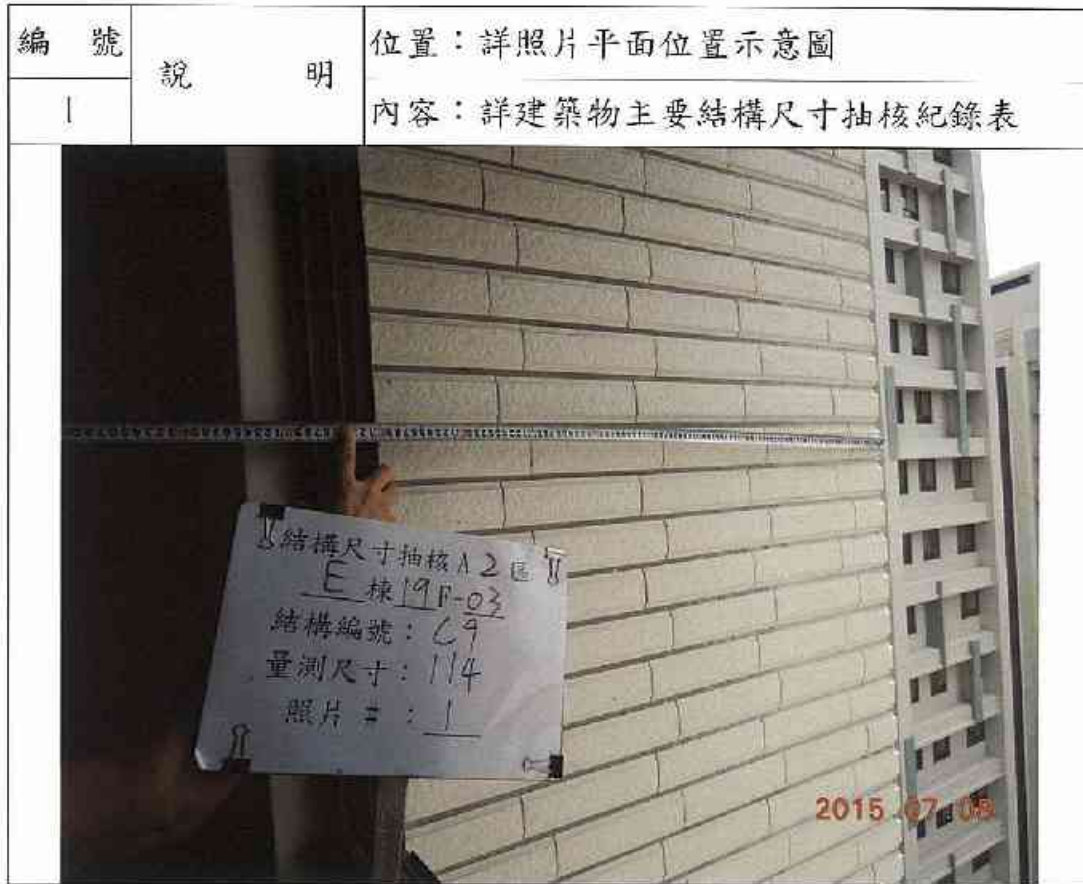 編 號
說 明
位置：詳照片平面位置示意圖
1
內容：詳建築物主要結構尺寸抽核紀錄表
結構尺寸抽核 A 2 區
E 棟 19F-03
結構編號：C9
量測尺寸：114
照片 #：1
2015 07 08